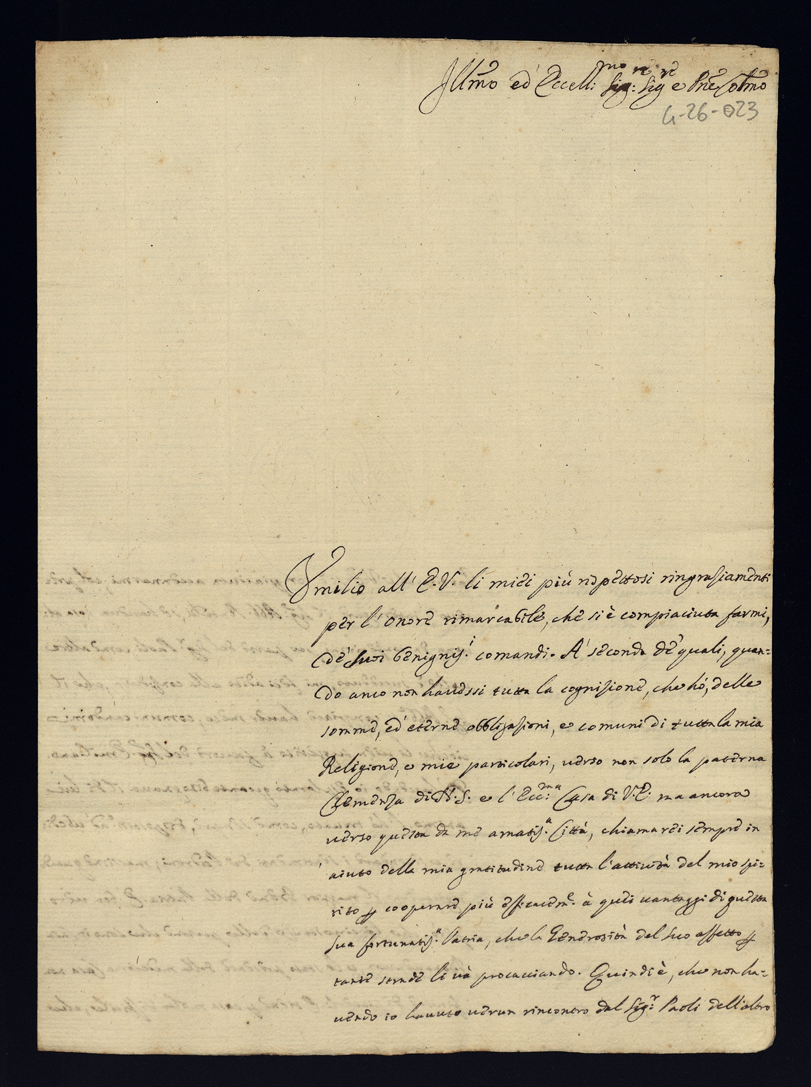 Illmo ed' Eccell:mo Sig:re Sig:re e Pne Colmo
4-26-023
Umilio all' E.V. li miei più rispettosi ringraziamenti
per l'onore rimarcabile, che si è compiaciuta farmi,
de' suoi benignis:i comandi. A' seconda de' quali, quan-
do anco non havessi tutta la cognizione, che hò, delle
somme, ed' eterne obbligazioni, e comuni di tutta la mia
Religione, e mie particolari, verso non solo la paterna
Clemenza di N.S. e l'Ecc:ma Casa di V.E. ma ancora
verso questa da me amatis:a Città, chiamarei sempre in
aiuto della mia gratitudine tutta l'attività del mio spi-
rito p cooperare più efficacem:e à quei vantaggi di questa
sua fortunatis:a Patria, che la Generosità del suo affetto p
tante strade li và procacciando. Quindi è, che non ha-
vendo io havuto verun rincontro dal Sig:r Paoli dell'altro